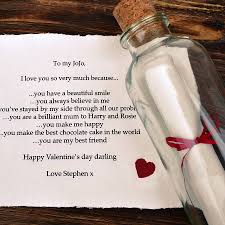 To my JoJo,
I love you so very much because...
...you have a beautiful smile
...you always believe in me
you've stayed by my side through all our prob
...you are a brilliant mum to Harry and Rosie
...you make me happy
...you make the best chocolate cake in the world
...you are my best friend
Happy Valentine's day darling
Love Stephen x